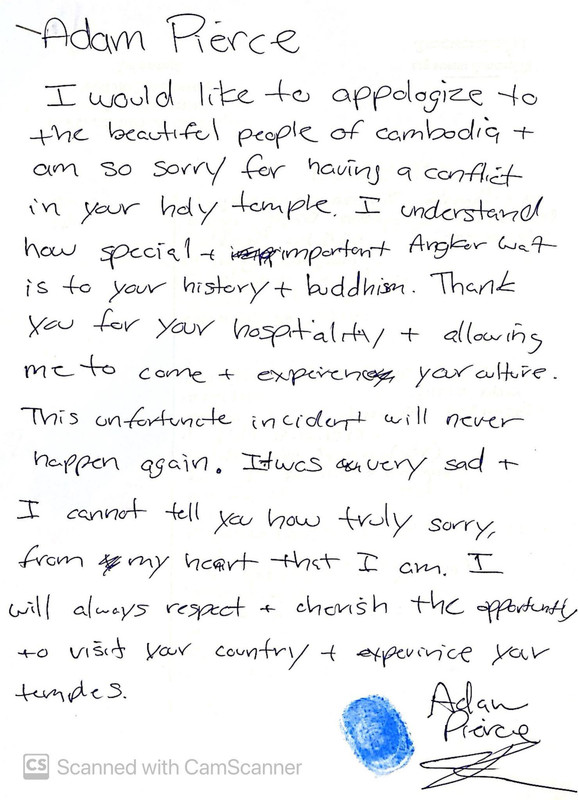 Adam Pierce
I would like to appologize to
the beautiful people of cambodia +
am so sorry for having a conflict
in your holy temple. I understand
how special + important Angkor Wat
is to your history + buddhism. Thank
you for your hospitality + allowing
me to come + experience your culture.
This unfortunate incident will never
happen again. It was very sad +
I cannot tell you how truly sorry,
from my heart that I am. I
will always respect + cherish the opportunity
to visit your country + experince your
temples.
Adam
Pierce
CS Scanned with CamScanner